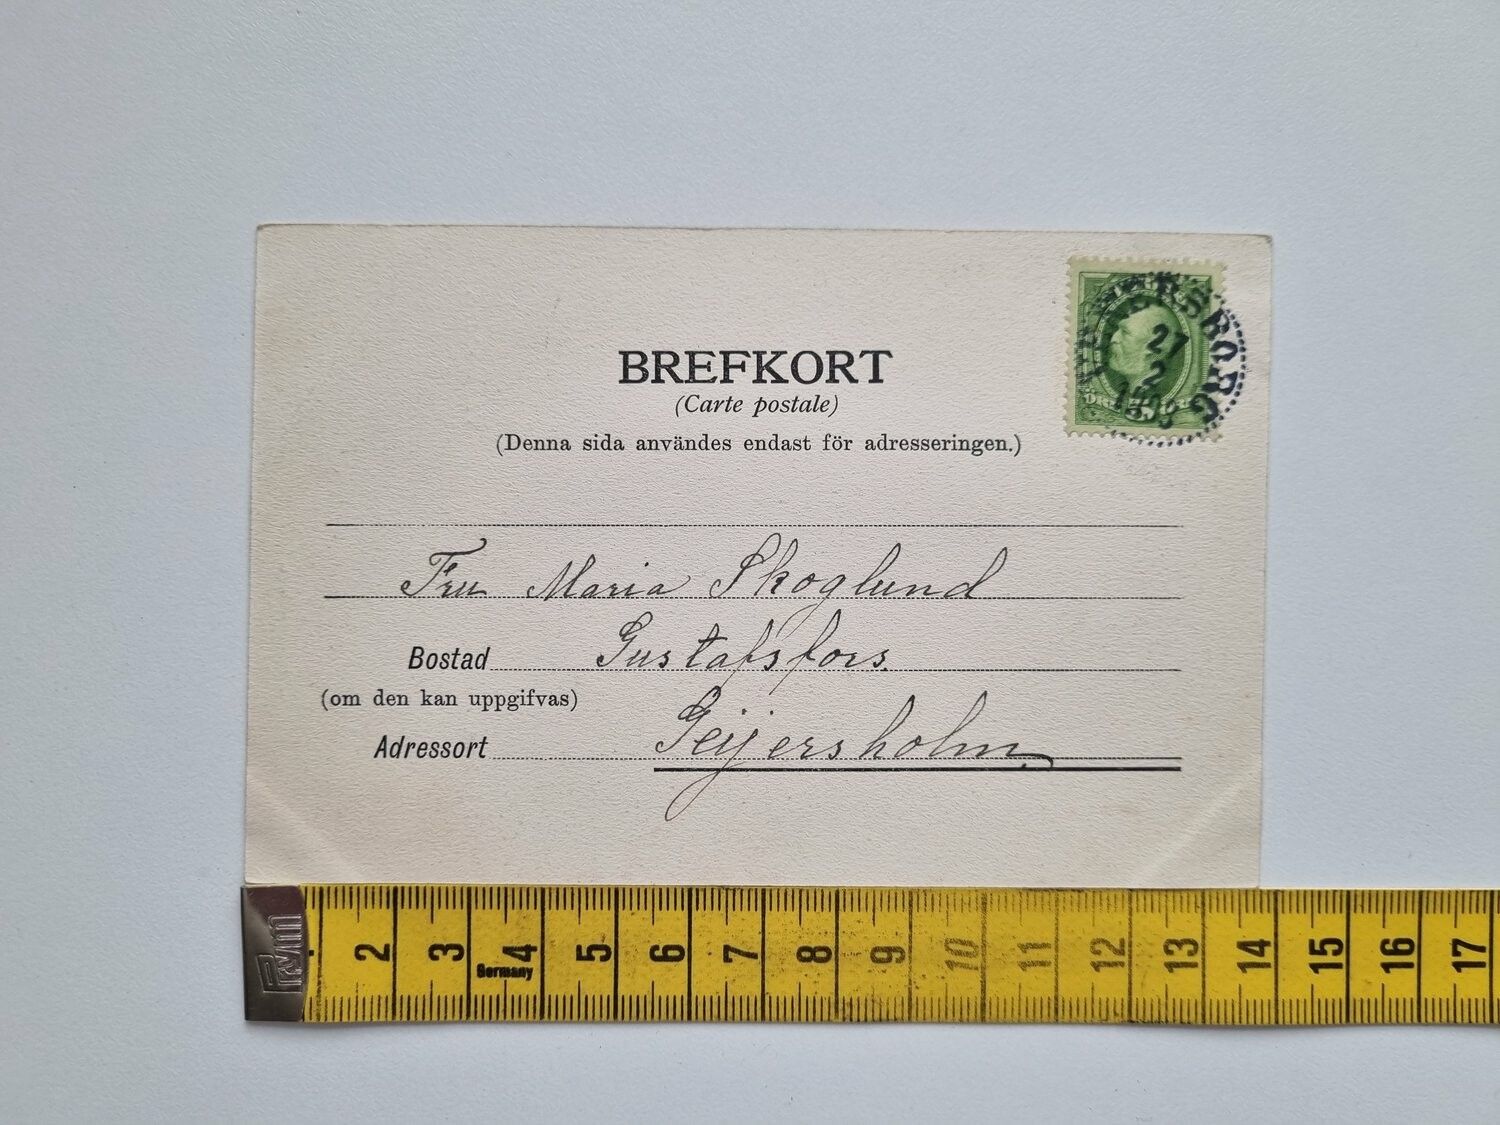 BREFKORT
(Carte postale)
(Denna sida användes endast för adresseringen.)
27
2
Fru Maria Skoglund
Bostad Gustafsfors
(om den kan uppgifvas)
Adressort Geijersholm
Prym
2 3 4 5 6 7 8 9 10 11 12 13 14 15 16 17
Germany